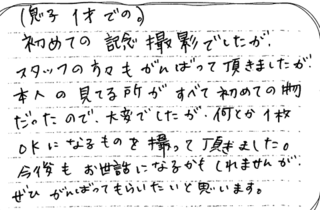 (息子 1才での。)
初めての 記念 撮影でしたが、
スタッフの方々もがんばって頂きましたが、
本人の見てる所が すべて初めての物
だったので、大変でしたが、何とか1枚
OKになるものを撮って頂きました。
今後も お世話になるかもしれませんが、
ぜひ がんばってもらいたいと思います。